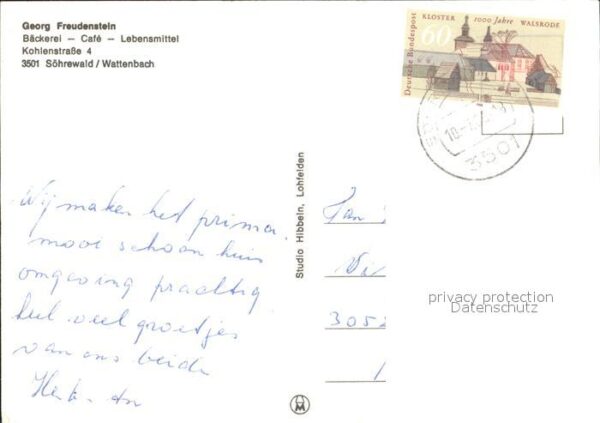 Georg Freudenstein
Bäckerei – Café – Lebensmittel
Kohlenstraße 4
3501 Söhrewald / Wattenbach
KLOSTER 1000 Jahre WALSRODE
60
Deutsche Bundespost
3501
Wij maken het prima.
mooi schoon huis
omgeving prachtig
heel veel groetjes
van ons beide
Studio Hibbeln, Lohfelden
Jan
305
privacy protection
Datenschutz